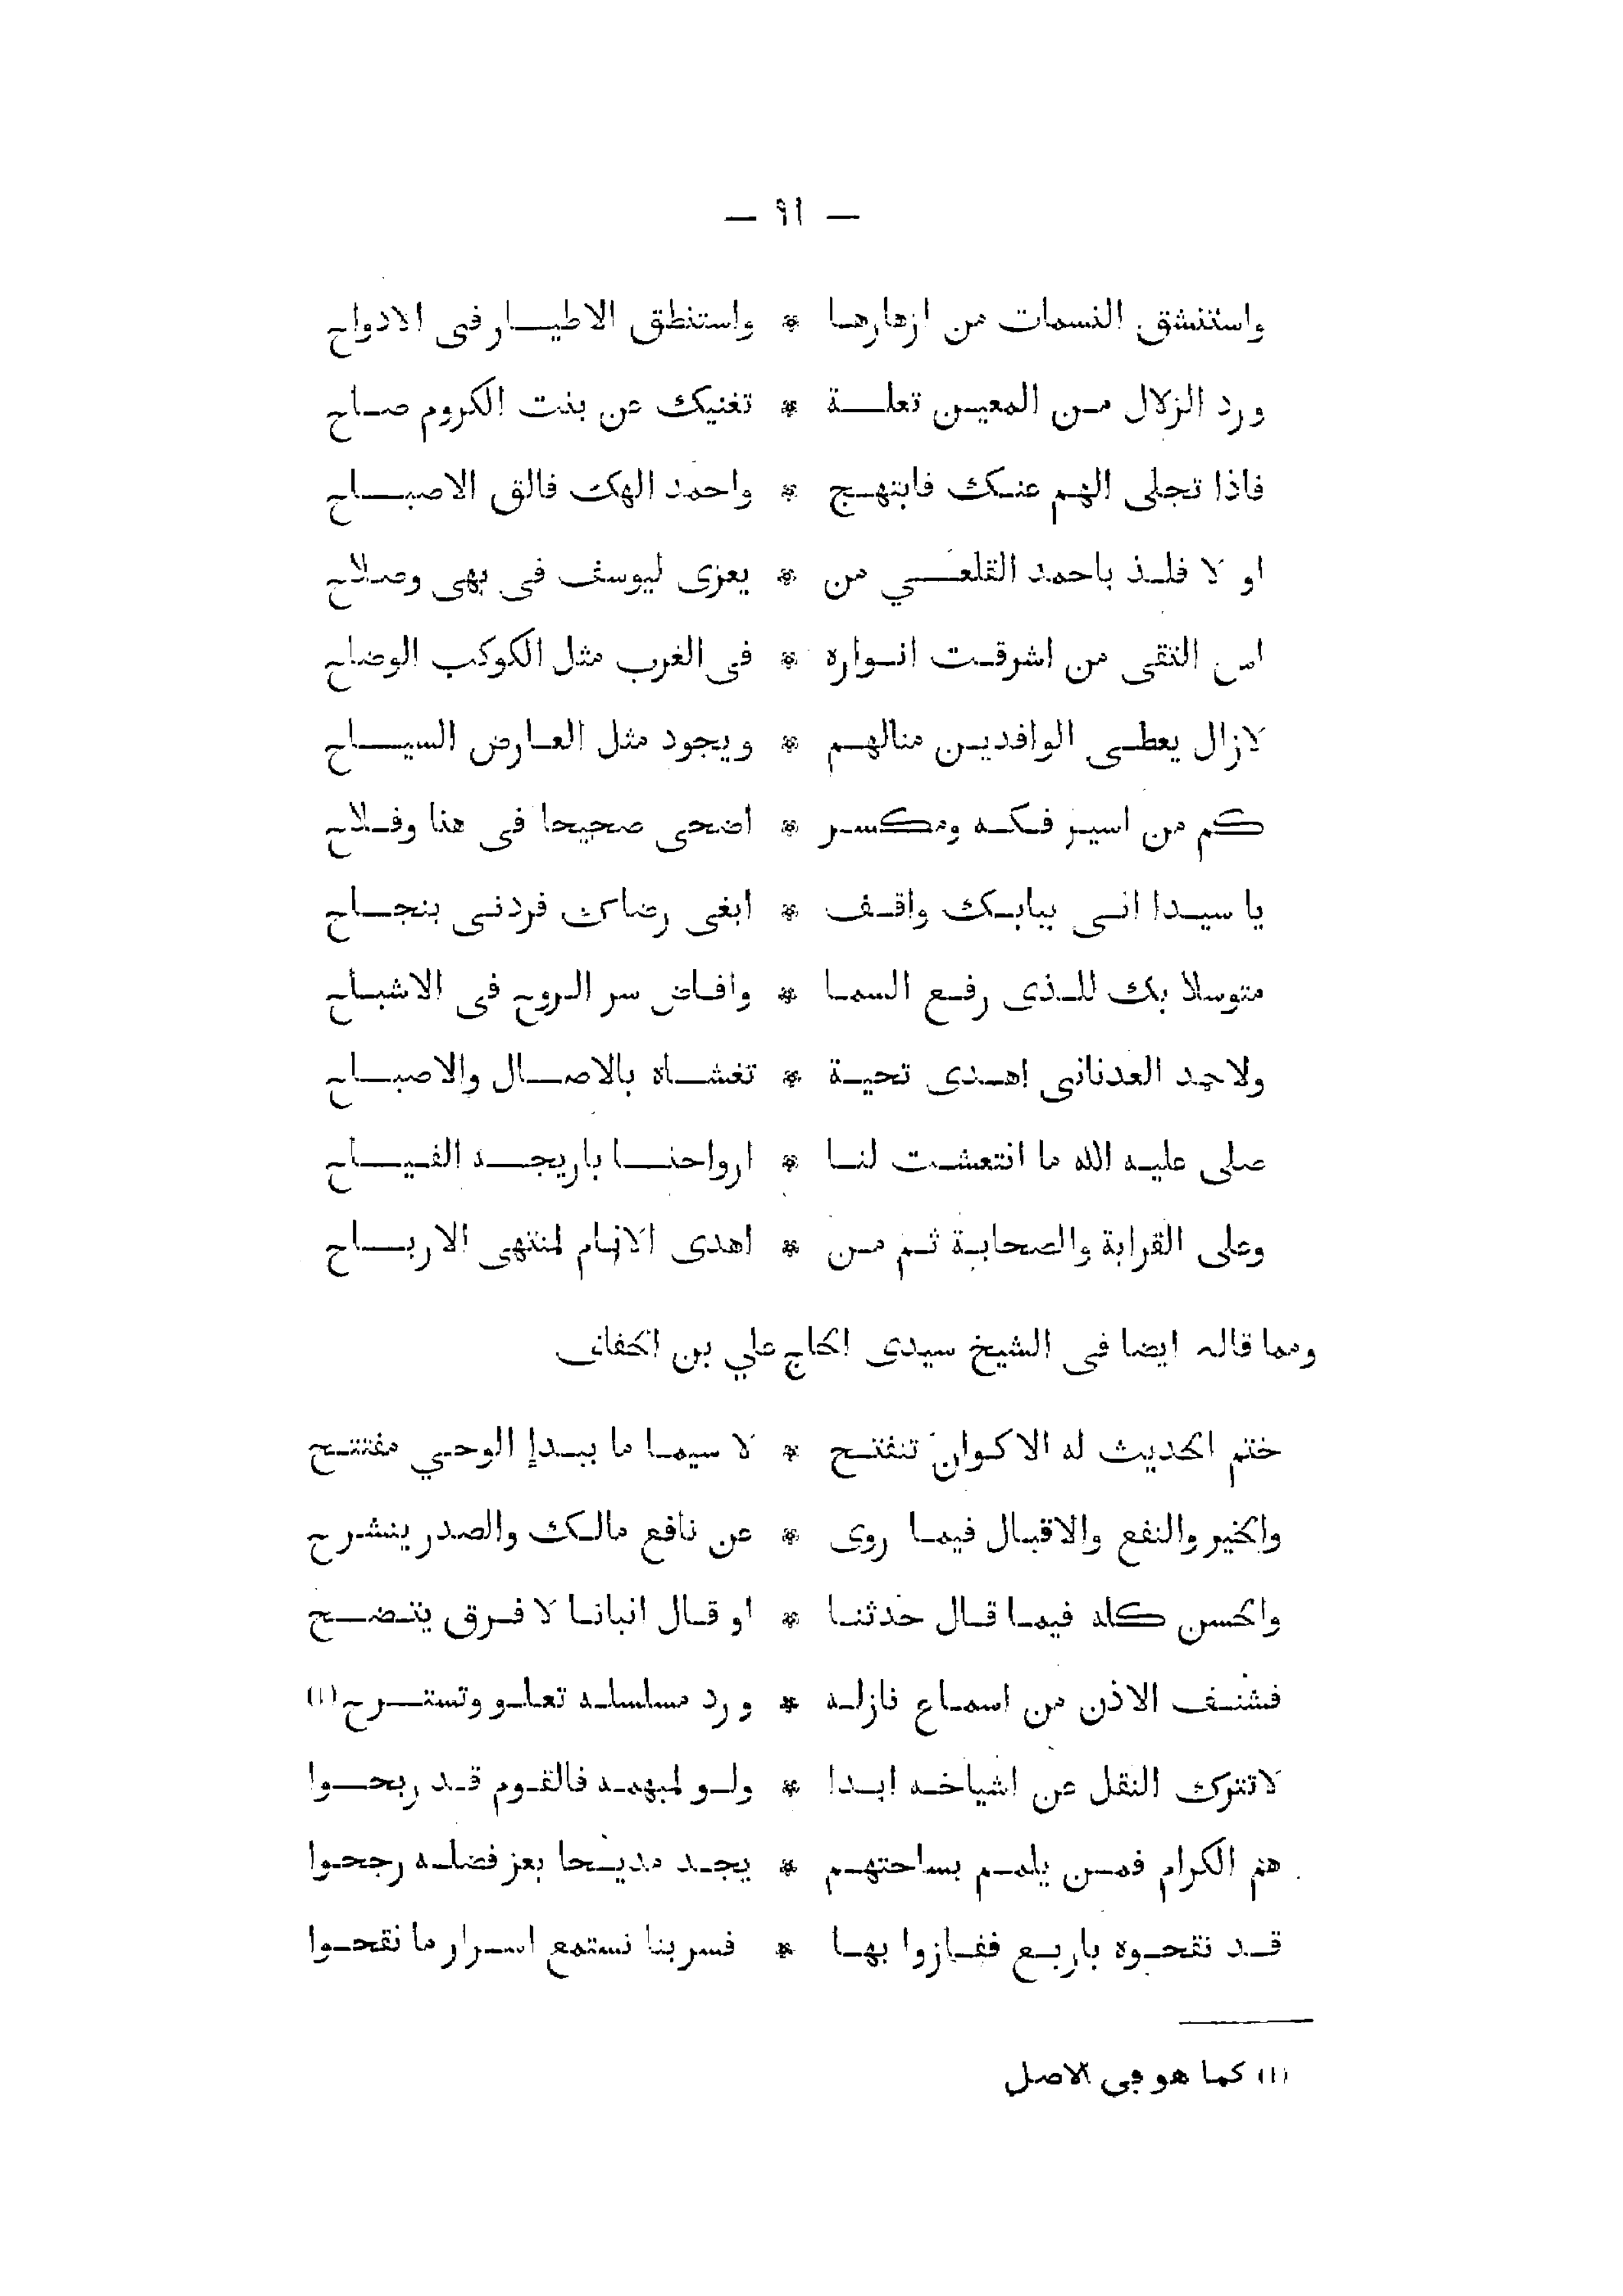 — ٩١ —
واستنشق النسمات من ازهارها * واستنطق الاطيار فى الادواح
ورد الزلال من المعين تعلة * تغنيك عن بنت الكروم صاح
فاذا تجلى الهم عنك فابتهج * واحمد الهك فالق الاصباح
او لا فلذ باحمد القلعي من * يعزى ليوسف فى بهى وصلاح
اس التقى من اشرقت انواره * فى الغرب مثل الكوكب الوضاح
لازال يعطى الوافدين منالهم * ويجود مثل العارض السياح
كم من اسير فكه ومكسر * اضحى صحيحا فى هنا وفلاح
يا سيدا انى ببابك واقف * ابغى رضاك فردنى بنجاح
متوسلا بك للذى رفع السما * وافاض سر الروح فى الاشباح
ولاحمد العدنانى اهدى تحية * تغشاه بالاصال والاصباح
صلى عليه الله ما انتعشت لنا * ارواحنا باريجه الفياح
وعلى القرابة والصحابة ثم من * اهدى الانام لمنتهى الارباح
ومما قاله ايضا فى الشيخ سيدى الحاج علي بن الحفاف
ختم الحديث له الاكوان تنفتح * لا سيما ما ببدإ الوحي مفتتح
والخير والنفع والاقبال فيما روى * عن نافع مالك والصدر ينشرح
والحسن كله فيما قال حدثنا * او قال انبانا لا فرق يتضح
فشنف الاذن من اسماع نازله * ورد مسلسله تعلو وتسترح (١)
لا تترك النقل عن اشياخه ابدا * ولو لمبهمه فالقوم قد ربحوا
هم الكرام فمن يلمم بساحتهم * يجد مديحا بعز فضله رجحوا
قد نقحوه باربع ففازوا بها * فسر بنا نستمع اسرار ما نقحوا
(١) كما هو في الاصل